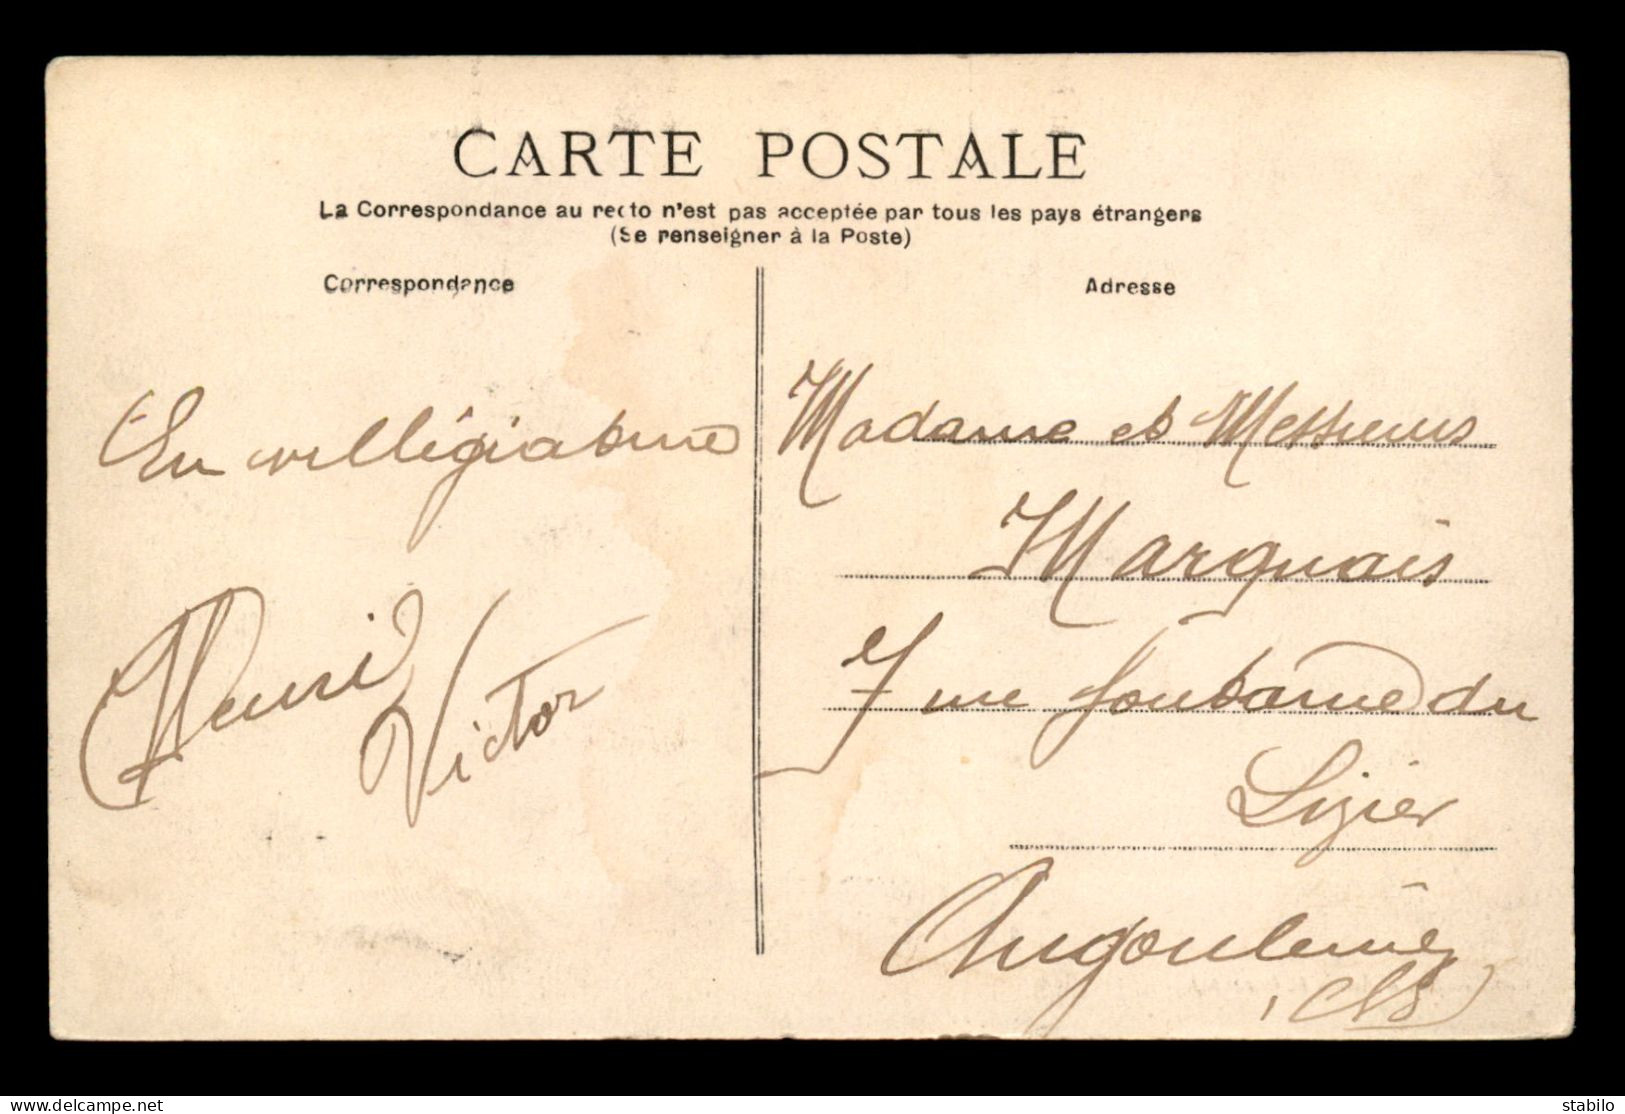 CARTE POSTALE
La Correspondance au recto n'est pas acceptée par tous les pays étrangers
(Se renseigner à la Poste)
Correspondance
Adresse
En villégiature
Henri
Victor
Madame et Messieurs
Marquais
7 rue fontaine du
Lizier
Angoulême
stabilo